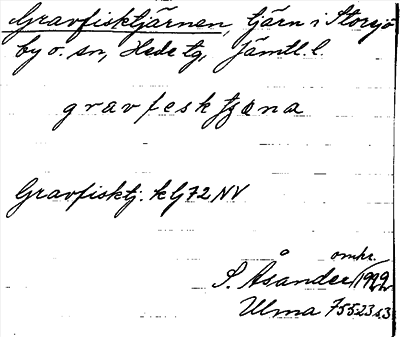 Gravfisktjärnen, tjärn i Storsjö
by o. sn, Hede tg, Jämtl. l.
gravfesktjǝna
Gravfisktj. kbl 72 NV
omkr.
S. Åsander 1922
Ulma 755:23 s.3